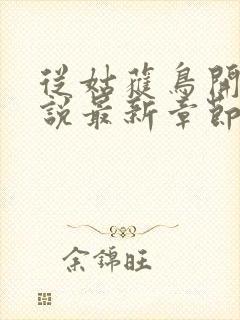 從姑蒦鳥開
說最新章節
余錦旺